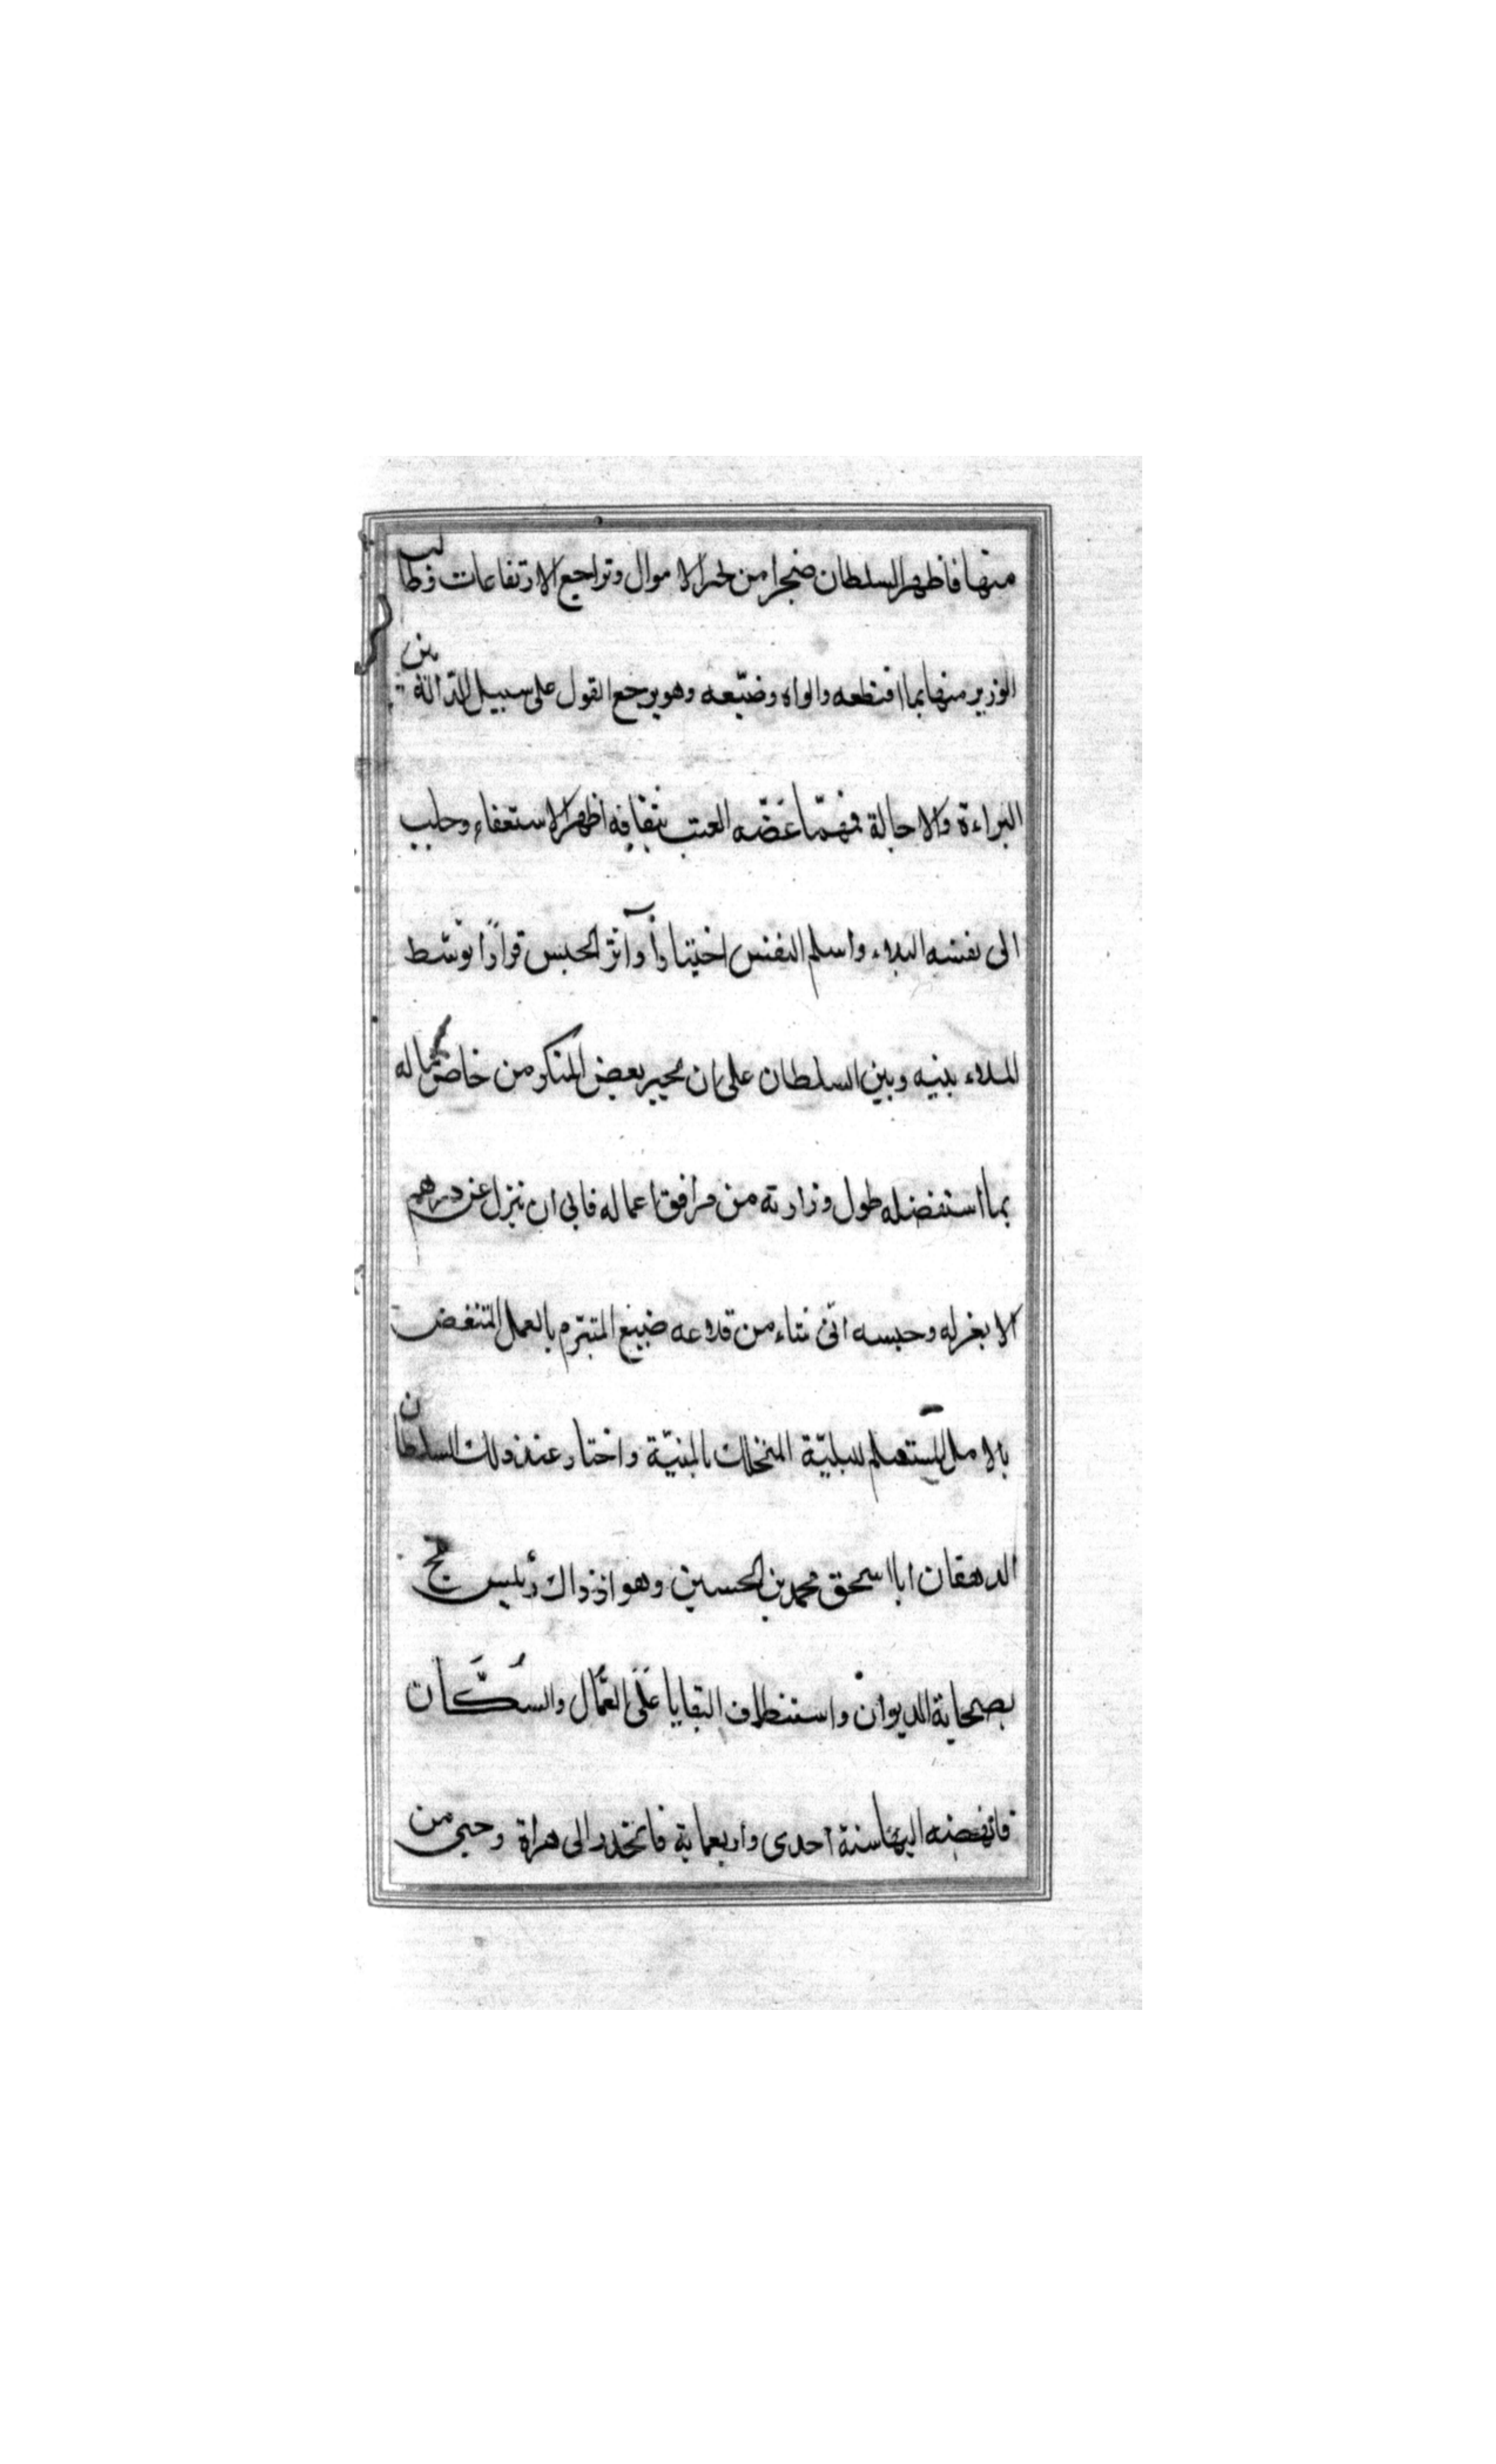 منها فاظهر السلطان ضجرا من الاموال وتراجع الارتفاعات وطالب
الوزير منها بما اقتطعه والواه وضيّعه وهو يرجع القول على سبيل الدّالة بين
البراءة والاحالة فمهما عَضّه العتب بثقافه اظهر الاستعفاء وجلب
الى نفسه البلاء واسلم النفس اختيارا وآثر الحبس قرارًا توسّط
الملاء بينه وبين السلطان على ان يجبر بعض المنكر من خاص ماله
بما استفضله طول وزارته من مرافق اعماله فابى ان ينزل عن درهم
الا بعزله وحبسه انّى شاء من قلاعه صنيع المتبرّم بالعمل المتنغص
بالامل المستسلم للبليّة المنخلت بالمنيّة واختار عند ذلك السلطان
الدهقان ابا اسحق محمد بن الحسين وهو اذ ذاك رئيس بلخ
بصحابة الديوان واستنظاف البقايا عَلَى العمّال والسُّكَّان
فانهضه اليها سنة احدى واربعماية فانحدر الى هراة وجبى من